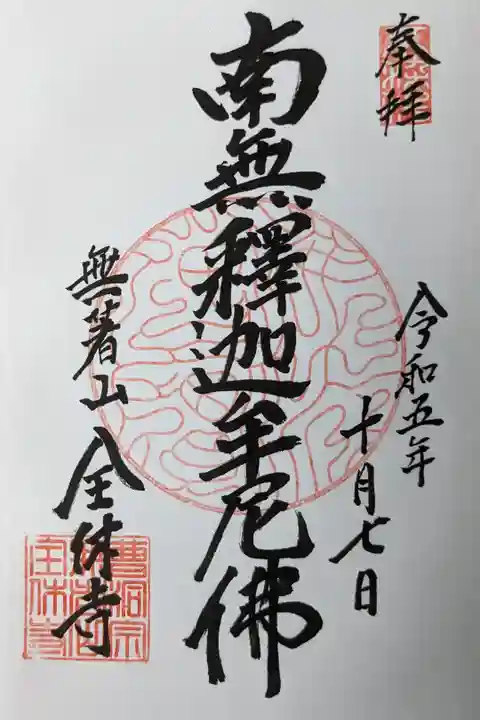 奉拜
令和五年
十月七日
南無釋迦牟尼佛
無著山
全休寺
曹洞宗
全休寺